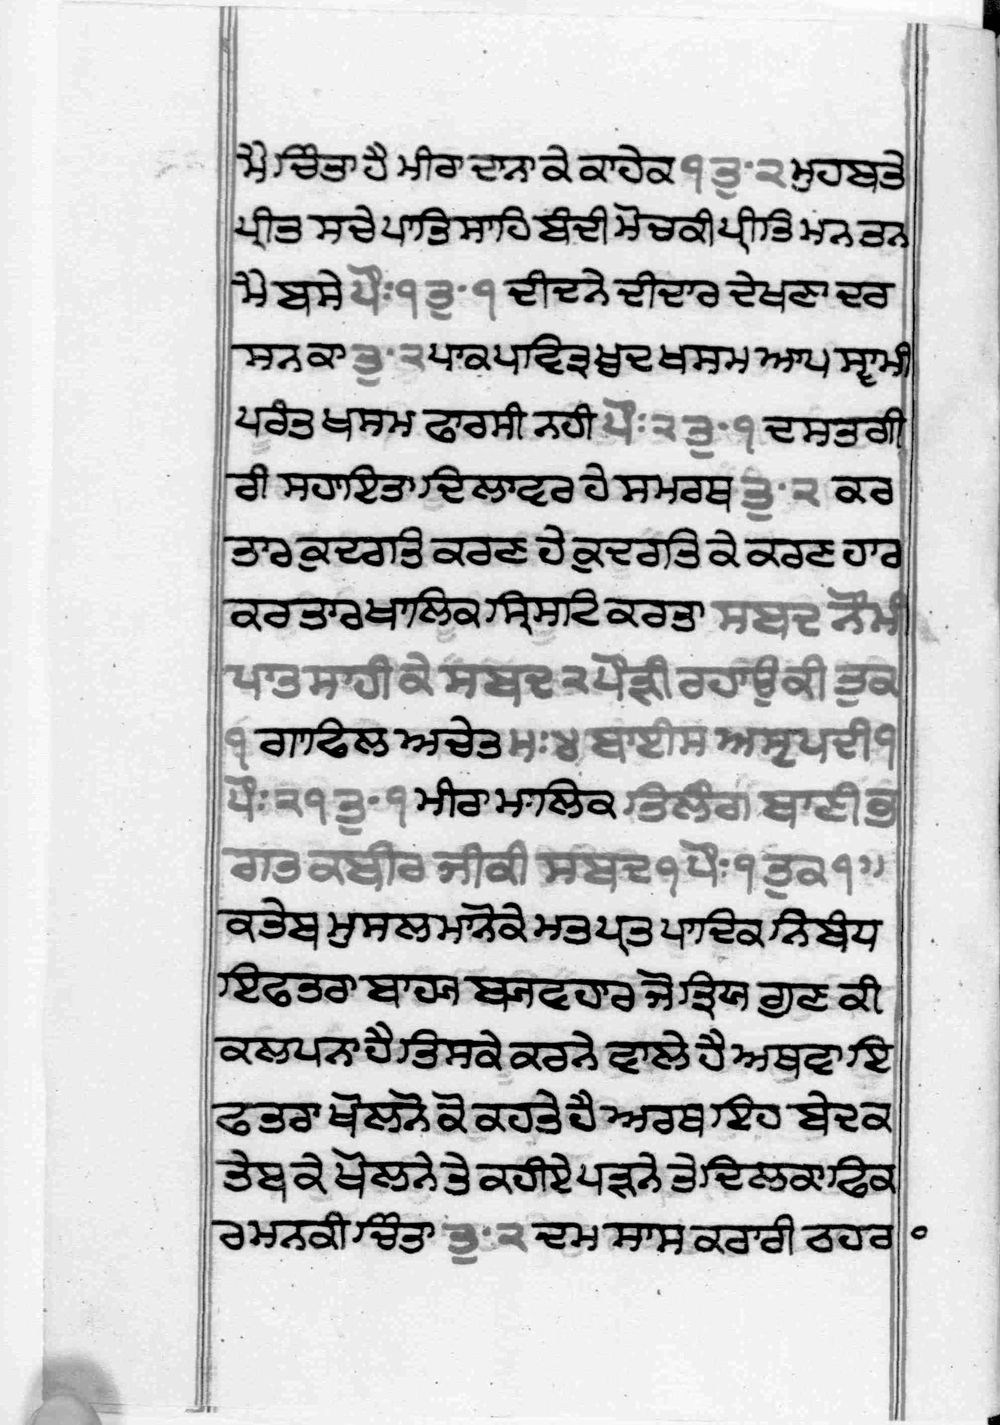 ਮੈ ਚਿੰਤਾ ਹੈ ਮੀਰਾ ਦਾਨਾ ਕੇ ਕਾਹੇਕ ੧ ਤੁ੦ ੨ ਮੁਹਬਤੇ
ਪ੍ਰੀਤ ਸਚੇ ਪਾਤਿਸਾਹਿ ਬੰਦੀ ਮੋਚ ਕੀ ਪ੍ਰੀਤਿ ਮਨ ਤਨ
ਮੈ ਬਸੇ ਪੌਃ ੧ ਤੁ੦ ੧ ਦੀਦਨੇ ਦੀਦਾਰ ਦੇਖਣਾ ਦਰ
ਸਨ ਕਾ ਤੁ੦ ੨ ਪਾਕ ਪਵਿਤ੍ਰ ਖੁਦ ਖਸਮ ਆਪ ਸ੍ਵਾਮੀ
ਪਰੰਤੁ ਖਸਮ ਫਾਰਸੀ ਨਹੀ ਪੌਃ ੨ ਤੁ੦ ੧ ਦਸਤਗੀ
ਰੀ ਸਹਾਇਤਾ ਦਿਲਾਵਰ ਹੇ ਸਮਰਥ ਤੁ੦ ੨ ਕਰ
ਤਾਰ ਕੁਦਰਤਿ ਕਰਣ ਹੇ ਕੁਦਰਤਿ ਕੇ ਕਰਣ ਹਾਰ
ਕਰਤਾਰ ਖਾਲਿਕ ਸ੍ਰਿਸਟਿ ਕਰਤਾ ਸਬਦ ਨੌਮੀ
ਪਾਤਸਾਹੀ ਕੇ ਸਬਦ ੨ ਪੌੜੀ ਰਹਾਉ ਕੀ ਤੁਕ
੧ ਗਾਫਿਲ ਅਚੇਤ ਮਃ ੪ ਬਾਈਸ ਅਸ੍ਟਪਦੀ ੧
ਪੌਃ ੨੧ ਤੁ੦ ੧ ਮੀਰਾ ਮਾਲਿਕ ਤਿਲੰਗ ਬਾਣੀ ਭ
ਗਤ ਕਬੀਰ ਜੀ ਕੀ ਸਬਦ ੧ ਪੌਃ ੧ ਤੁਕ ੧ ॥
ਕਤੇਬ ਮੁਸਲਮਾਨੋ ਕੇ ਮਤ ਪ੍ਰਤਪਾਦਿਕ ਨਿਬੰਧ
ਇਫਤਰਾ ਬਾਹਯ ਬਯਵਹਾਰ ਜੋ ਤ੍ਰਿਯ ਗੁਣ ਕੀ
ਕਲਪਨਾ ਹੈ ਤਿਸਕੇ ਕਰਨੇ ਵਾਲੇ ਹੈ ਅਥਵਾ ਇ
ਫਤਰਾ ਖੋਲਨੋ ਕੋ ਕਹਤੇ ਹੈ ਅਰਥ ਇਹ ਬੇਦ ਕ
ਤੇਬ ਕੇ ਖੋਲਨੇ ਤੇ ਕਹੀਏ ਪੜਨੇ ਤੇ ਦਿਲ ਕਾ ਫਿਕ
ਰ ਮਨ ਕੀ ਚਿੰਤਾ ਤੁ੦ ੨ ਦਮ ਸਾਸ ਕਰਾਰੀ ਠਹਰ ੦